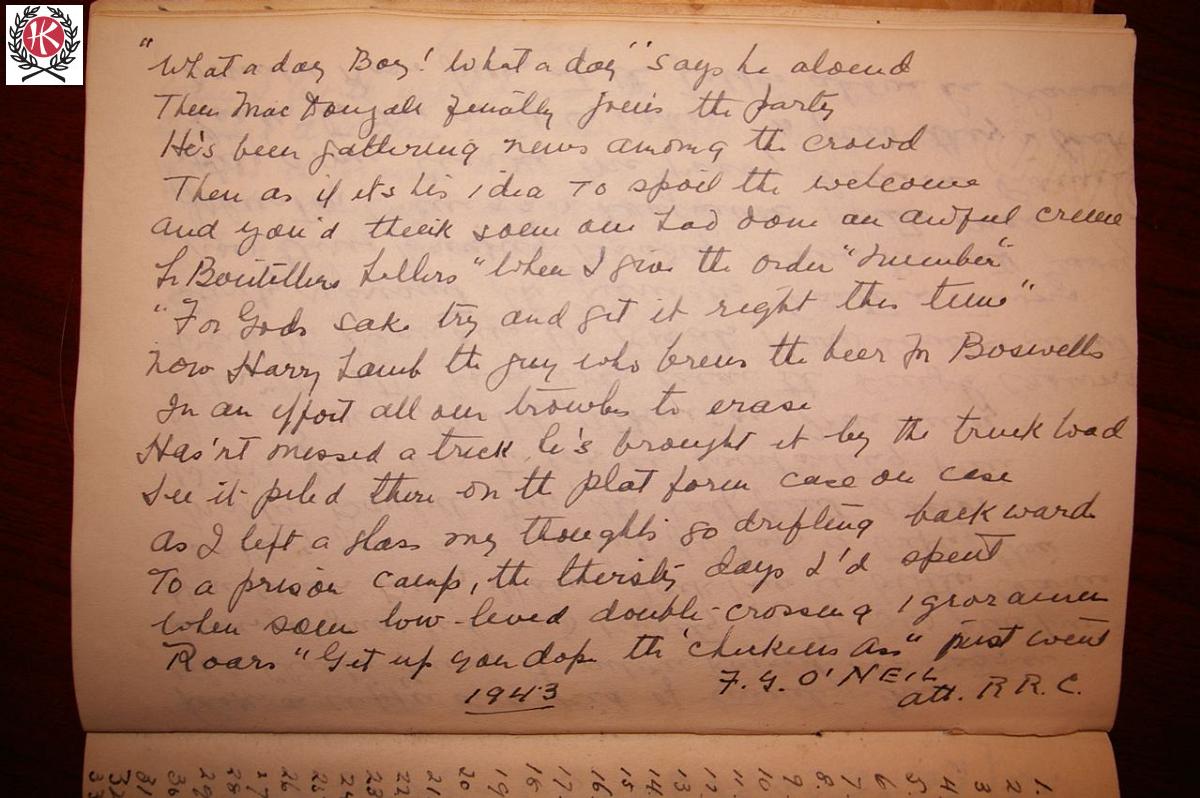 HK
"What a day Boy! What a day" says he alound
Then MacDougall finally joins the party
He's been gathering news among the crowd
Then as if its his idea to spoil the welcome
and you'd think some one had done an awful crime
Le Boutillier hollers "When I give the order "number"
"For Gods sake try and get it right this time"
now Harry Lamb the guy who brews the beer In Boswells
In an effort all our troubles to erase
Has'nt missed a trick he's brought it by the truck load
See it piled there on the plat form case on case
As I lift a glass my thoughts go drifting backward
To a prison camp, the thirsty days I'd spent
When some low-lived double-crossing ignoramus
Roars "Get up you dope the "chickens ass" just went
1943
F.G. O'NEIL
att. R R. C.
1. 2 3 4. 5. 6 7. 8. 9. 10. 11. 12. 13 14. 15 16. 17. 18 19 20 21 22 23 24 25 26 27 28 29 30 31 32 33